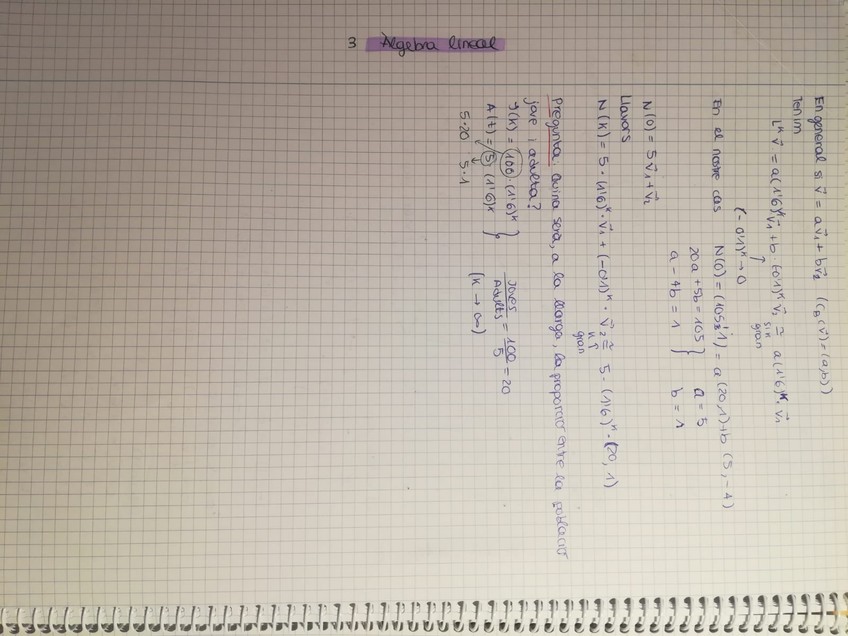 3 Àlgebra lineal
En general si v⃗ = av⃗₁ + bv⃗₂ (C_B(v⃗)=(a,b))
Tenim
Lᴷv⃗ = a(1'6)ᴷv⃗₁ + b·(-0'1)ᴷv⃗₂ ≅ a(1'6)ᴷ·v⃗₁
gran
(-0'1)ᴷ → 0
En el nostre cas N(0) = (105, 1) = a(20,1)+b (5,-4)
20a + 5b = 105 } a = 5
a - 4b = 1 } b = 1
N(0) = 5v⃗₁ + v⃗₂
Llavors
N(K) = 5·(1'6)ᴷ·v⃗₁ + (-0'1)ᴷ·v⃗₂ ≅ 5·(1'6)ᴷ·(20, 1)
K ↑
gran
Pregunta: Quina serà, a la llarga, la proporció entre la població
jove i adulta?
J(K) = 100·(1'6)ᴷ }
A(t) = 5·(1'6)ᴷ }
Joves/Adults = 100/5 = 20
(K → ∞)
5·20 5·1